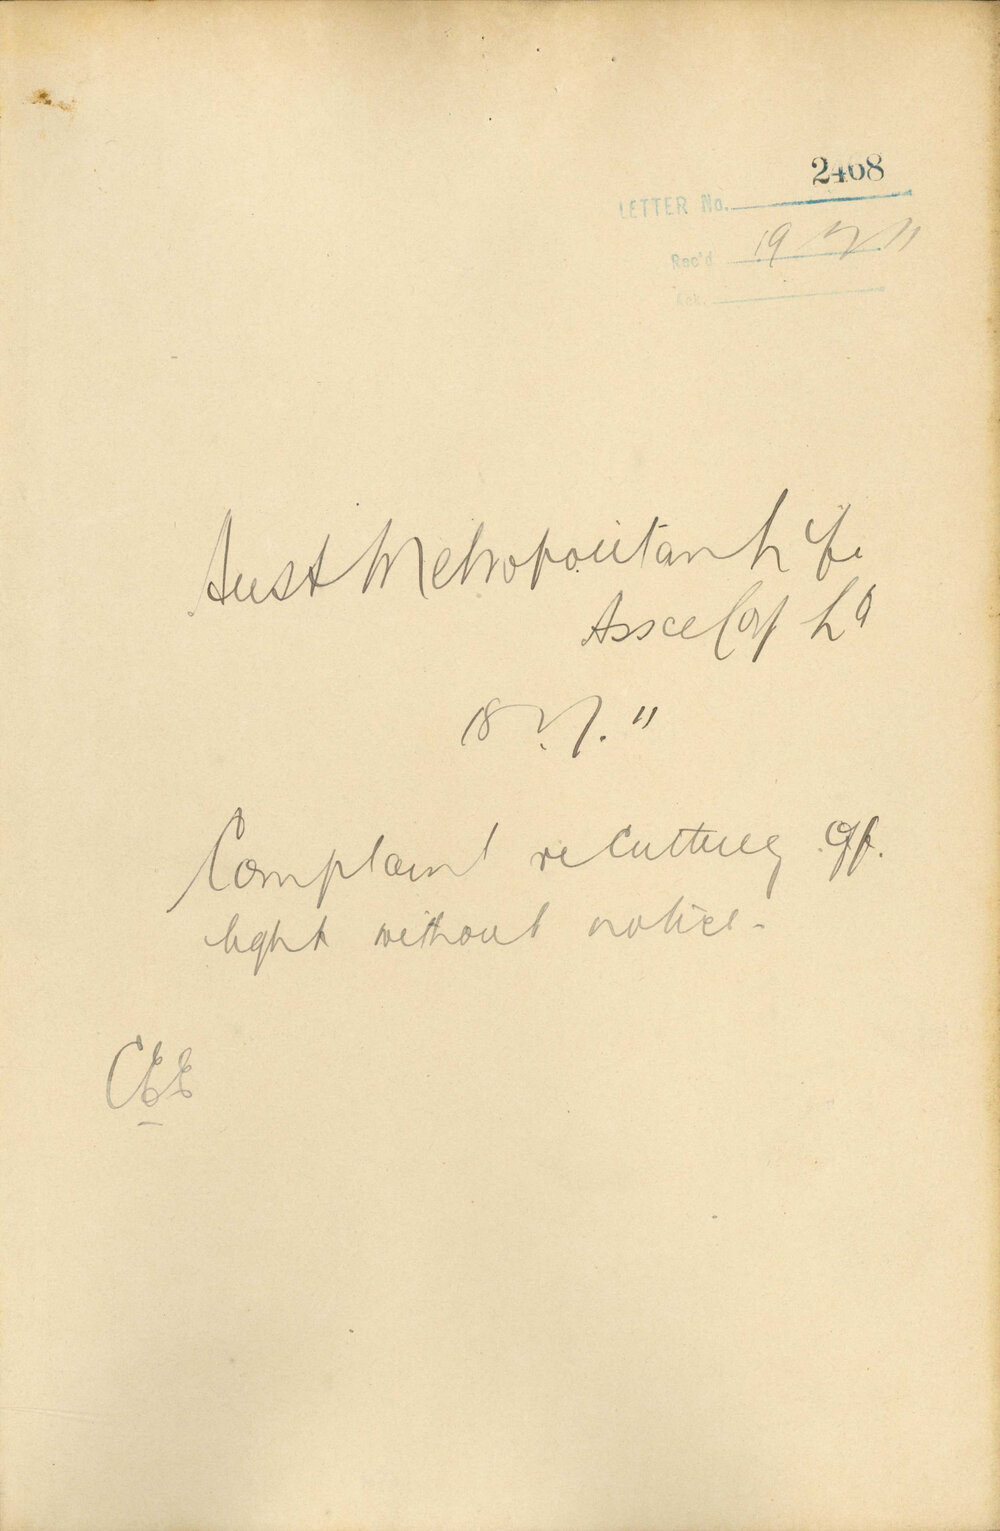 2468
LETTER No.
Rec'd 19 7 11
Ack.
Aust Metropolitan Life
Assce Corp Ld
18.7.11
Complaint re Cutting off
light without notice-
CEE